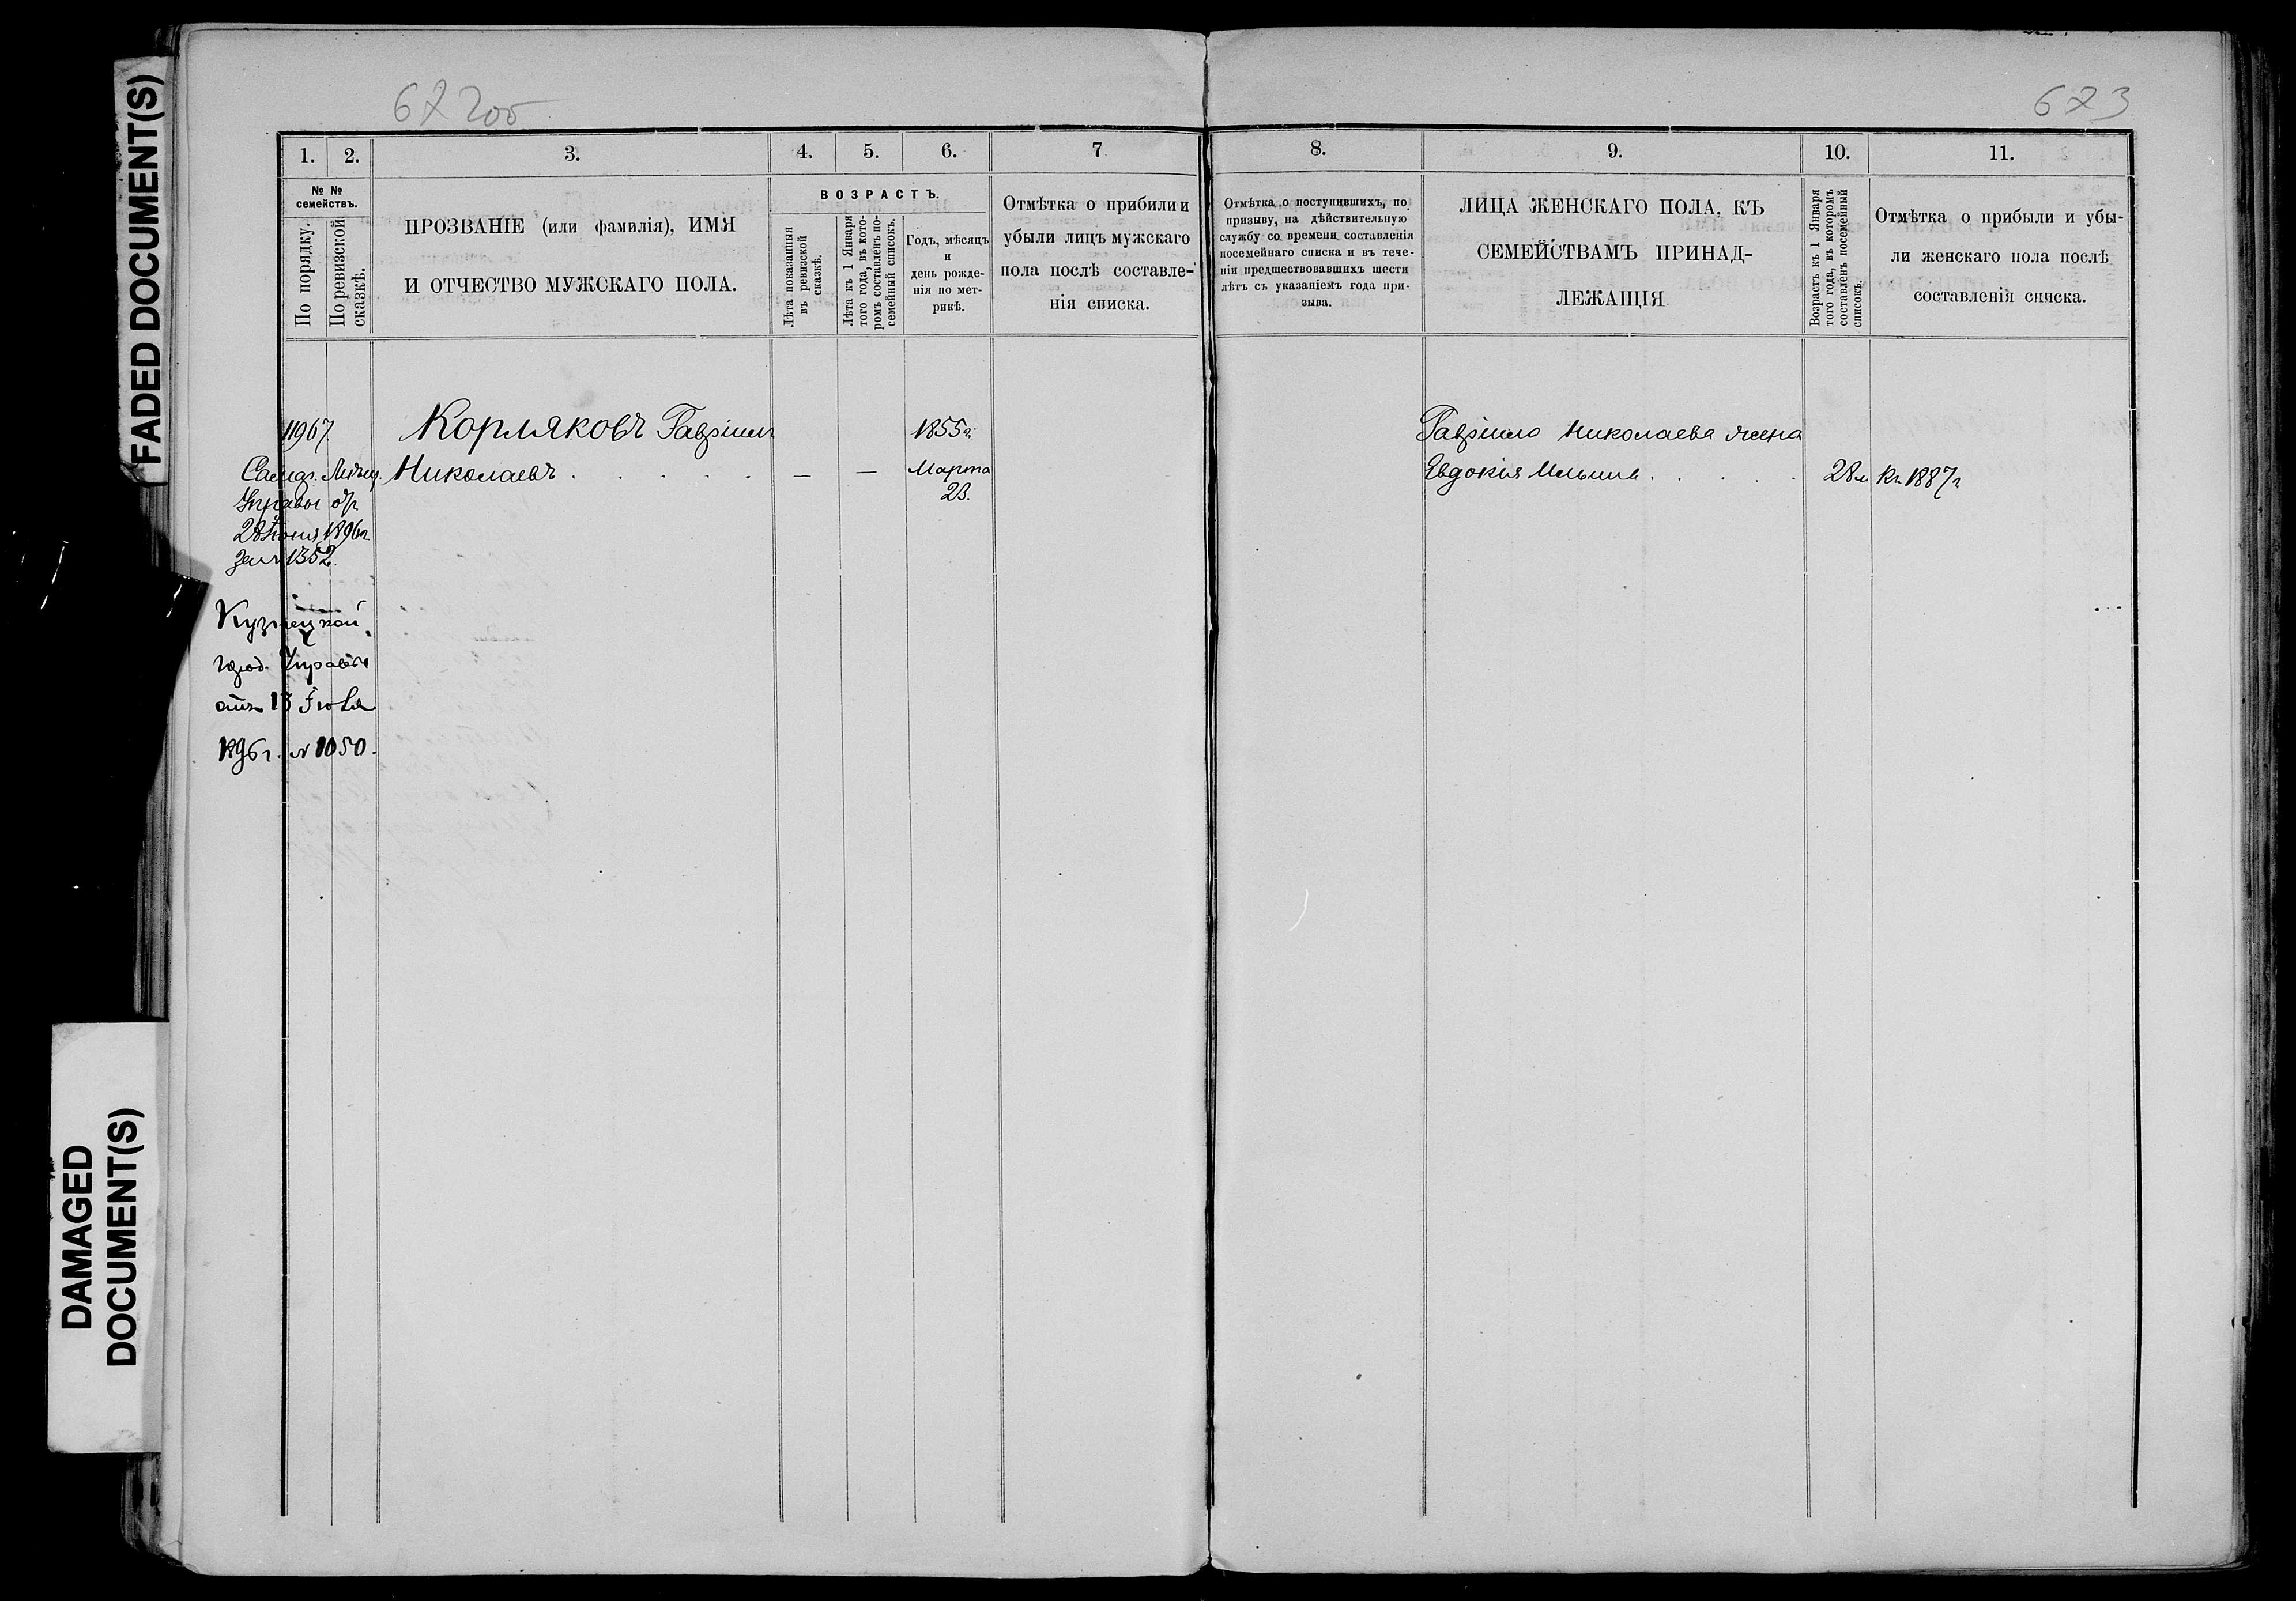 FADED DOCUMENT(S)
DAMAGED
DOCUMENT(S)
67 2об
673
1. 2. 3. 4. 5. 6. 7 8. 9. 10. 11.
№ №
семействъ.
По порядку.
По ревизской
сказкѣ.
ПРОЗВАНІЕ (или фамилія), ИМЯ
И ОТЧЕСТВО МУЖСКАГО ПОЛА.
ВОЗРАСТЪ.
Лѣта показанныя
въ ревизской
сказкѣ.
Лѣта къ 1 Января
того года, въ кото-
ромъ составленъ по-
семейный списокъ.
Годъ, мѣсяцъ
и
день рожде-
нія по мет-
рикѣ.
Отмѣтка о прибили и
убыли лицъ мужскаго
пола послѣ составле-
нія списка.
Отмѣтка о поступившихъ, по
призыву, на дѣйствительную
службу со времени составленія
посемейнаго списка и въ тече-
ніи предшествовавшихъ шести
лѣтъ съ указаніемъ года при-
зыва.
ЛИЦА ЖЕНСКАГО ПОЛА, КЪ
СЕМЕЙСТВАМЪ ПРИНАД-
ЛЕЖАЩІЯ
Возрастъ къ 1 Января
того года, въ которомъ
составленъ посемейный
списокъ.
Отмѣтка о прибыли и убы-
ли женскаго пола послѣ
составленія списка.
11967.
Корляковъ Гавріилъ
Николаевъ . . . . . . — —
1855 г.
Марта
23.
Гавріила Николаева жена
Евдокія Ильина . . . . . 28 л къ 1887 г
Управы
28 Іюня 1896 г
1352.
Кузнецкой
город. Управы
отъ 13 Іюля
1896 г. № 1050.